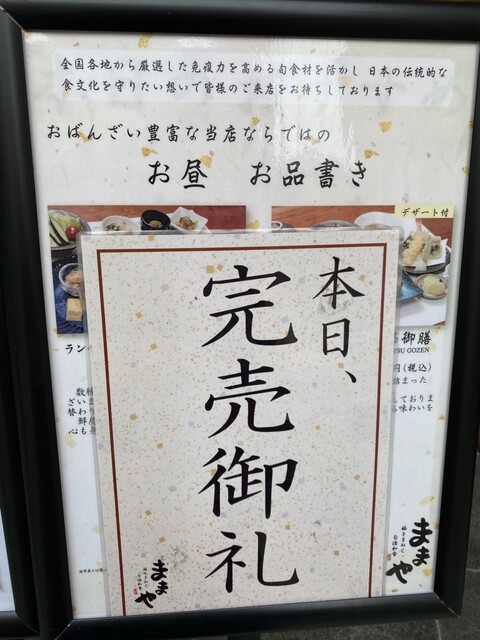 全国各地から厳選した免疫力を高める旬食材を活かし 日本の伝統的な
食文化を守りたい想いで皆様のご来店をお待ちしております
おばんざい豊富な当店ならではの
お昼 お品書き
デザート付
本日、
完売御礼
ままや
ラン
御膳
SU GOZEN
円(税込)
詰まった
しておりま
味わいを
数種
ざいま
替わり
鮮
心も
ままや